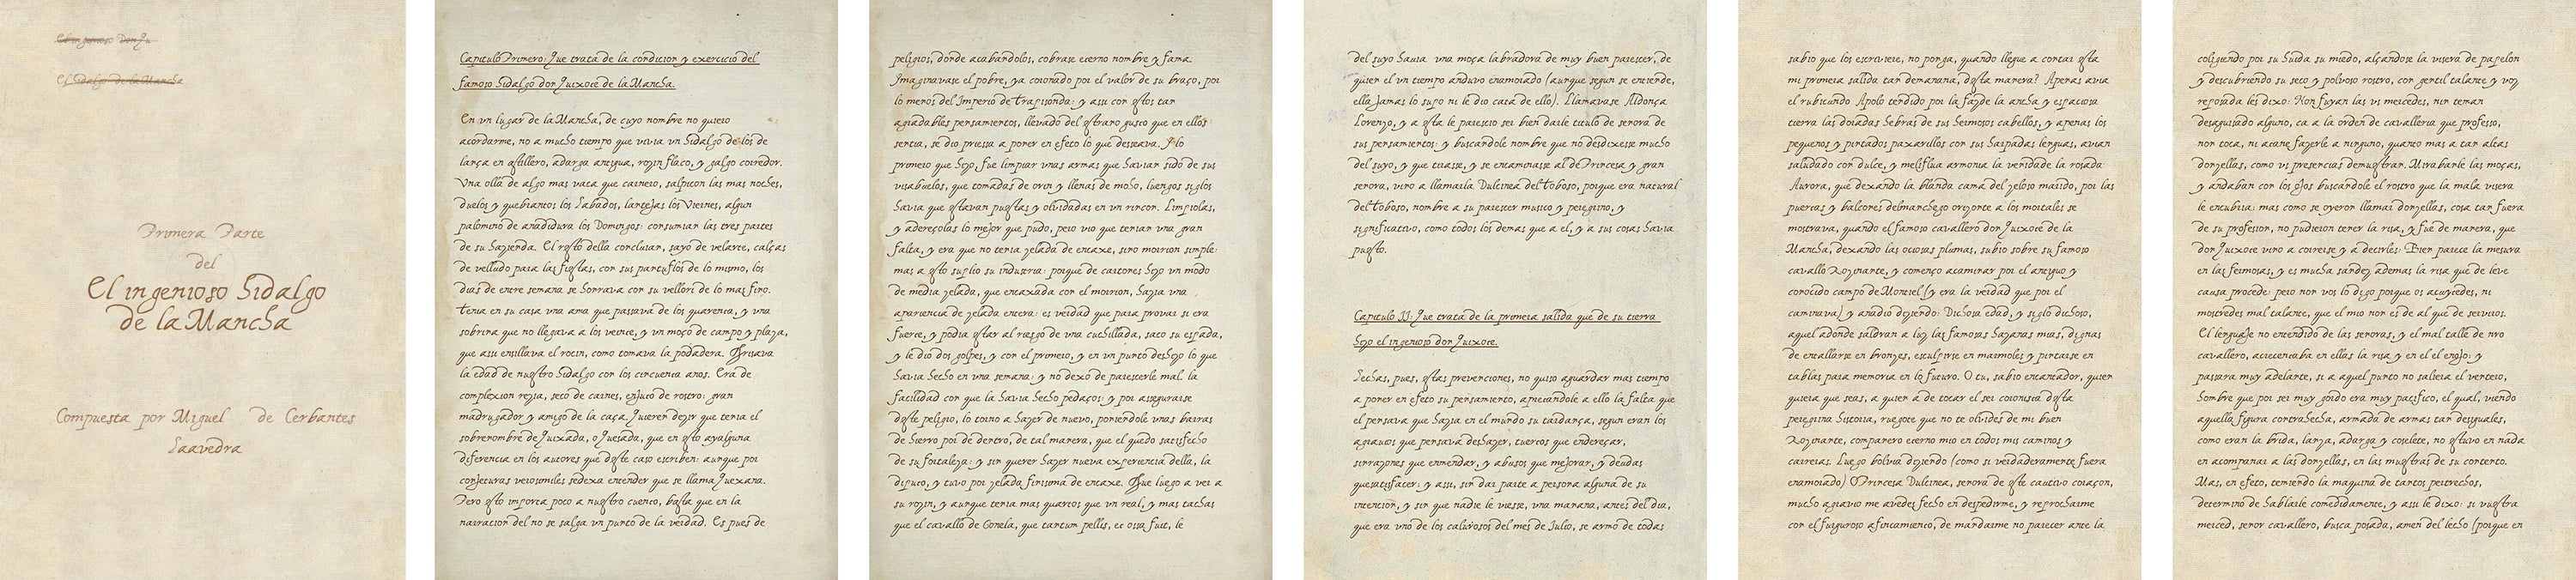 El ingenioso Don Qu
El hidalgo de la Mancha
Primera Parte
del
El ingenioso hidalgo
de la Mancha
Compuesta por Miguel de Cerbantes
Saavedra
Capitulo Primero: Que trata de la condicion y exercicio del
famoso hidalgo don Quixote de la Mancha.
En un lugar de la Mancha, de cuyo nombre no quiero
acordarme, no a mucho tiempo que vivia un hidalgo de los de
lança en astillero, adarga antigua, rozin flaco, y galgo corredor.
Vna olla de algo mas vaca que carnero, salpicon las mas noches,
duelos y quebrantos los Sabados, lantejas los Viernes, algun
palomino de añadidura los Domingos: consumian las tres partes
de su hazienda. El resto della concluian, sayo de velarte, calças
de velludo para las fiestas, con sus pantuflos de lo mismo, los
dias de entre semana se honrava con su vellori de lo mas fino.
Tenia en su casa una ama que passava de los quarenta, y una
sobrina que no llegava a los veinte, y un moço de campo y plaza,
que assi ensillava el rocin, como tomava la podadera. Frisava
la edad de nuestro hidalgo con los cincuenta anos. Era de
complexion rezia, seco de carnes, enjuto de rostro: gran
madrugador y amigo de la caça. Quieren dezir que tenia el
sobrenombre de Quixada, o Quesada, que en esto ay alguna
diferencia en los autores que deste caso escriben: aunque por
conjeturas verosimiles se dexa entender que se llama Quexana.
Pero esto importa poco a nuestro cuento, basta que en la
narracion del no se salga vn punto de la verdad. Es pues de
peligros, donde acabandolos, cobrase eterno nombre y fama.
Imaginavase el pobre, ya coronado por el valor de su braço, por
lo menos del Imperio de Trapisonda: y assi con estos tan
agradables pensamientos, llevado del estrano gusto que en ellos
sentia, se dio priessa a poner en efeto lo que desseava. Y lo
primero que hizo, fue limpiar vnas armas que havian sido de sus
visabuelos, que tomadas de orin y llenas de moho, luengos siglos
havia que estavan puestas y olvidadas en vn rincon. Limpiolas,
y adereçolas lo mejor que pudo, pero vio que tenian vna gran
falta, y era que no tenia zelada de encaxe, sino morrion simple:
mas a esto suplio su industria: porque de cartones hizo vn modo
de media zelada, que encaxada con el morrion, hazia vna
apariencia de zelada entera: es verdad que para provar si era
fuerte, y podia estar al riesgo de una cuchillada, saco su espada,
y le dio dos golpes, y con el primero, y en un punto deshizo lo que
havia hecho en vna semana: y no dexo de parescerle mal la
facilidad con que la havia hecho pedaços: y por assegurarse
deste peligro, lo torno a hazer de nuevo, poniendole vnas barras
de hierro por de dentro, de tal manera, que el quedo satisfecho
de su fortaleza: y sin querer hazer nueva experiencia della, la
diputo, y tuvo por zelada finisima de encaxe. Fue luego a ver a
su rozin, y aunque tenia mas quartos que un real, y mas tachas
que el cavallo de Gonela, que tantum pellis, et ossa fuit, le
del suyo havia vna moça labradora de muy buen parescer, de
quien el vn tiempo anduvo enamorado (aunque segun se entiende,
ella jamas lo supo ni le dio cata de ello). Llamavase Aldonça
Lorenzo, y a esta le parescio ser bien darle titulo de senora de
sus pensamientos: y buscandole nombre que no desdixesse mucho
del suyo, y que tirasse, y se encaminase al de Princesa y gran
senora, vino a llamarla Dulcinea del Toboso, porque era natural
del Toboso, nombre a su parescer musico y peregrino, y
significativo, como todos los demas que a el, y a sus cosas havia
puesto.
Capitulo II: Que trata de la primera salida que de su tierra
hizo el ingenioso don Quixote.
Hechas, pues, estas prevenciones, no quiso aguardar mas tiempo
a poner en efeto su pensamiento, apretandole a ello la falta que
el pensava que hazia en el mundo su tardança, segun eran los
agravios que pensava deshazer, tuertos que endereçar,
sinrazones que enmendar, y abusos que mejorar, y deudas
que satisfacer: y assi, sin dar parte a persona alguna de su
intencion, y sin que nadie le viesse, una manana, antes del dia,
que era vno de los calurosos del mes de Julio, se armo de todas
sabio que los escriviere, no ponga, quando llegue a contar esta
mi primera salida tan de manana, desta manera? Apenas avia
el rubicundo Apolo tendido por la faz de la ancha y espaciosa
tierra las doradas hebras de sus hermosos cabellos, y apenas los
pequenos y pintados paxarillos con sus harpadas lenguas, avian
saludado con dulce, y meliflua armonia la venida de la rosada
Aurora, que dexando la blanda cama del zeloso marido, por las
puertas y balcones del manchego orizonte a los mortales se
mostrava, quando el famoso cavallero don Quixote de la
Mancha, dexando las ociosas plumas, subio sobre su famoso
cavallo Rozinante, y començo a caminar por el antiguo y
conocido campo de Montiel (y era la verdad que por el
caminava) y anadio diziendo: Dichosa edad, y siglo dichoso,
aquel adonde saldran a luz las famosas hazanas mias, dignas
de entallarse en bronzes, esculpirse en marmoles y pintarse en
tablas para memoria en lo futuro. O tu, sabio encantador, quien
quiera que seas, a quien a de tocar el ser coronista desta
peregrina historia, ruegote que no te olvides de mi buen
Rozinante, companero eterno mio en todos mis caminos y
carreras. Luego bolvia diziendo (como si verdaderamente fuera
enamorado) O Princesa Dulcinea, senora de este cautivo coraçon,
mucho agravio me avedes fecho en despedirme, y reprocharme
con el riguroso afincamiento, de mandarme no parecer ante la
coligiendo por su huida su miedo, alçandose la visera de papelon
y descubriendo su seco y polvoso rostro, con gentil talante y voz
reposada les dixo: Non fuyan las vs mercedes, nin teman
desaguisado alguno, ca a la orden de cavalleria que professo,
non toca, ni atane fazerle a ninguno, quanto mas a tan altas
donzellas, como vs presencias demuestran. Mirabanle las moças,
y andaban con los ojos buscandole el rostro que la mala visera
le encubria: mas como se oyeron llamar donzellas, cosa tan fuera
de su profession, no pudieron tener la risa, y fue de manera, que
don Quixote vino a correrse y a dezirles: Bien parece la mesura
en las fermosas, y es mucha sandez ademas la risa que de leve
causa procede: pero non vos lo digo porque os acuytedes, ni
mostredes mal talante, que el mio non es de al que de serviros.
El lenguaje no entendido de las senoras, y el mal talle de nro
cavallero, acrecentaba en ellas la risa y en el el enojo: y
passara muy adelante, si a aquel punto no saliera el ventero,
hombre que por ser muy gordo era muy pacifico, el qual, viendo
aquella figura contrahecha, armada de armas tan desiguales,
como eran la brida, lanza, adarga y coselete, no estuvo en nada
en acompanar a las donzellas, en las muestras de su contento.
Mas, en efeto, temiendo la maquina de tantos pertrechos,
determino de hablarle comedidamente, y assi le dixo: si vuestra
merced, senor cavallero, busca posada, amen del lecho (porque en